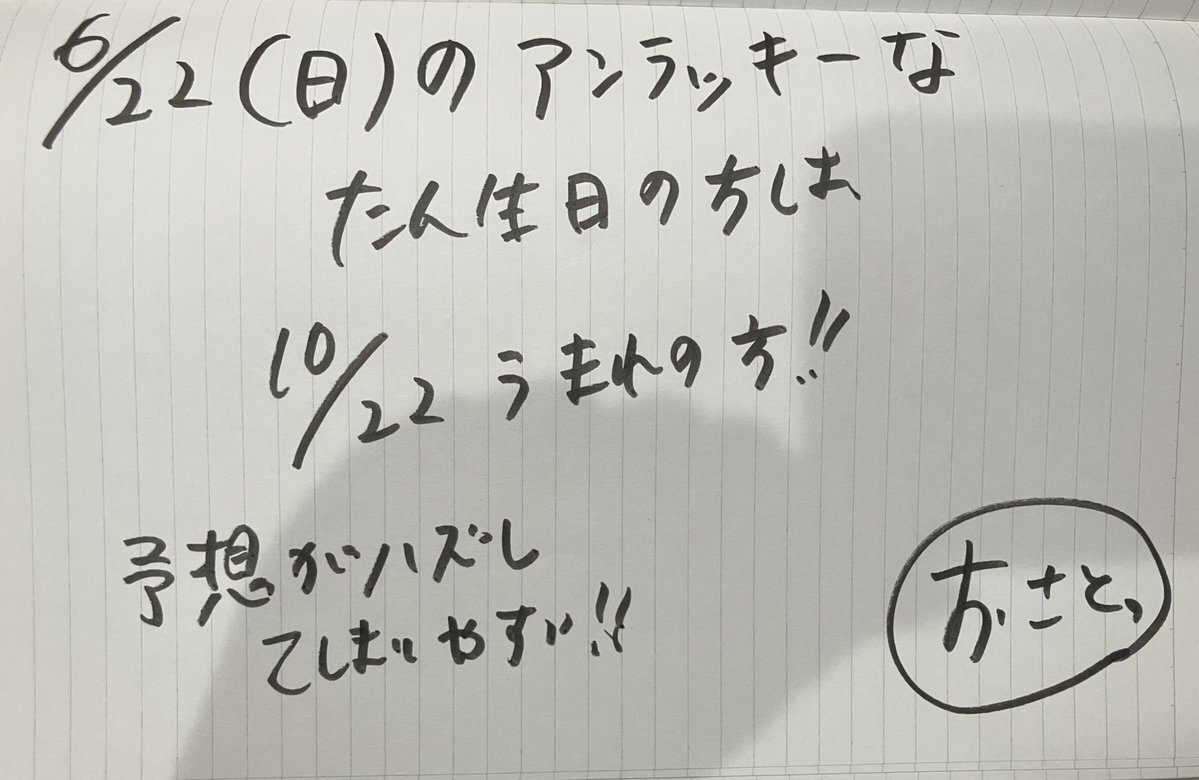 6/22(日)のアンラッキーな
たん生日の方は
10/22うまれの方!!
予想がハズし
てしまいやすい!!
おさと、